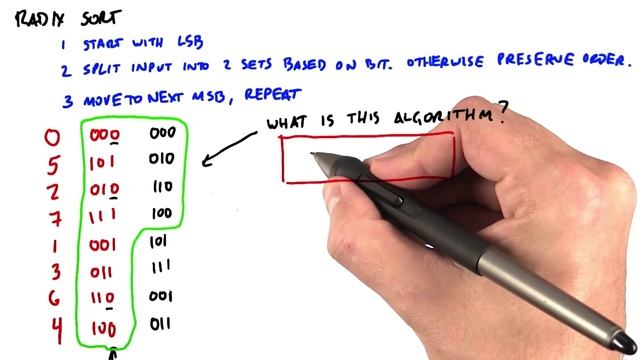 RADIX SORT
1 START WITH LSB
2 SPLIT INPUT INTO 2 SETS BASED ON BIT. OTHERWISE PRESERVE ORDER.
3 MOVE TO NEXT MSB, REPEAT
WHAT IS THIS ALGORITHM?
0 000 000
5 101 010
2 010 110
7 111 100
1 001 101
3 011 111
6 110 001
4 100 011